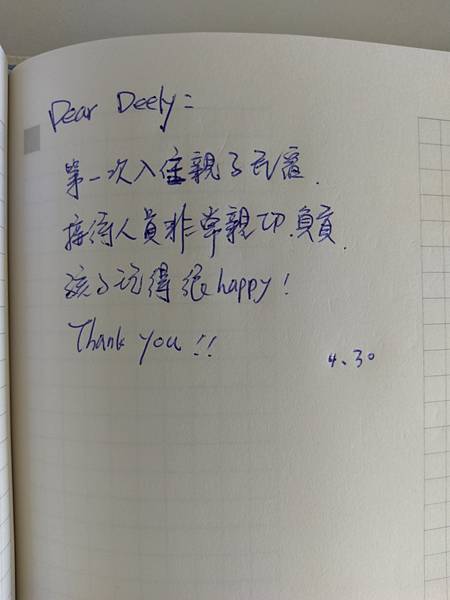 Dear Deely:
第一次入住親子民宿.
接待人員非常親切.負責.
孩子玩得很happy!
Thank you!!
4.30